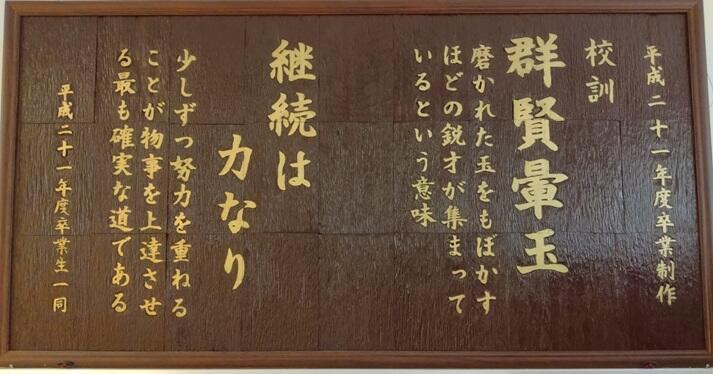 平成二十一年度卒業制作
校訓
群賢暈玉
磨かれた玉をもぼかす
ほどの鋭才が集まって
いるという意味
継続は
力なり
少しずつ努力を重ねる
ことが物事を上達させ
る最も確実な道である
平成二十一年度卒業生一同